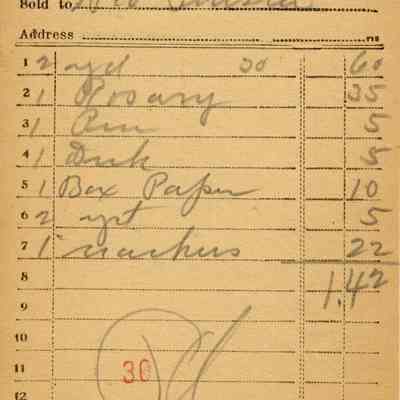 Sold to
Address
1 2 yd 30 60
2 1 Rosary 35
3 1 Pen 5
4 1 5
5 1 Box Paper 10
6 2 5
7 1 crackers 22
8 1.42
9
10
11 30
12